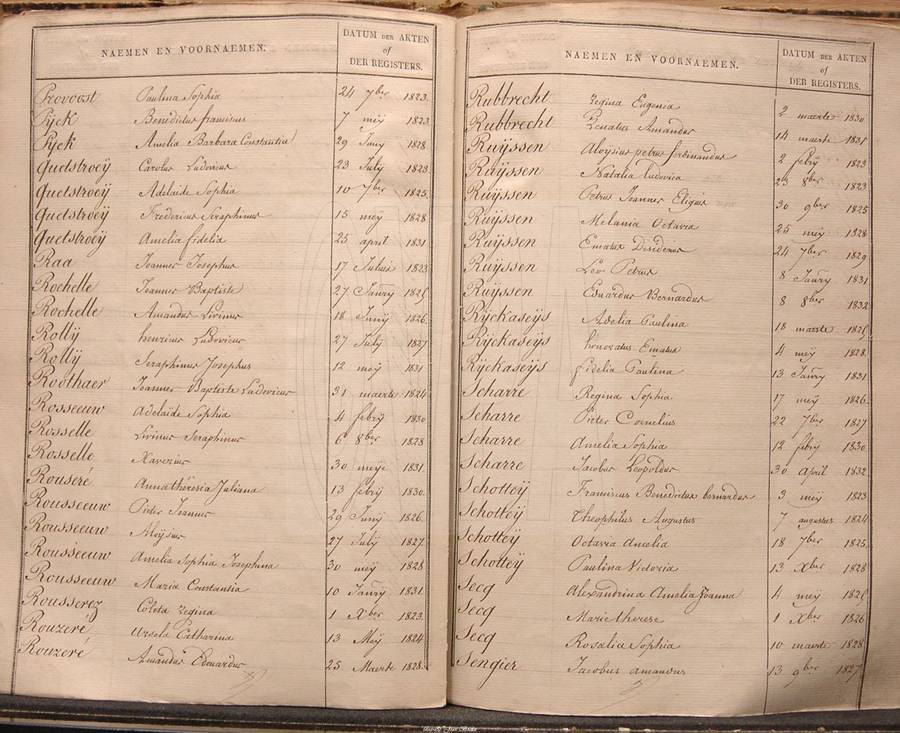 NAEMEN EN VOORNAEMEN. DATUM DER AKTEN
of
DER REGISTERS.
Provoost Paulina Sophia 24 7ber 1823.
Pijck Benedictus franciscus 7 meij 1823
Pijck Amelia Barbara Constantia 29 Junij 1828
Quetstroeij Carolus Ludovicus 23 July 1823
Quetstroeij Adelaide Sophia 10 7ber 1825.
Quetstroeij Fredericus Seraphinus 15 meij 1828
Quetstroeij Amelia fidelia 25 april 1831
Raa Joannes Josephus 17 Julius 1823
Rochelle Joannes Baptiste 27 Janrij 1825
Rochelle Amandus Livinus 18 Junij 1826.
Rollij henricus Ludovicus 27 July 1827
Rollij Seraphinus Josephus 12 meij 1831
Roothaer Joannes Baptiste Ludovicus 31 maerte 1824
Rosseeuw Adelaide Sophia 4 febrij 1830
Rosselle Livinus Seraphinus 6 8ber 1828
Rosselle Xaverius 30 meije 1831.
Rouseré Annathèresia Juliana 13 febrij 1830.
Rousseeuw Pieter Joannes 29 Junij 1826.
Rousseeuw Aloijsius 27 July 1827
Rousseeuw Amelia Sophia Josephina 30 meij 1828
Rousseeuw Maria Constantia 10 Janrij 1831.
Rousserez Coleta regina 1 Xber 1823.
Rouzeré Ursula Catharina 13 Meij 1824
Rouzeré Amandus Edouardus 25 Maerte 1828.
NAEMEN EN VOORNAEMEN. DATUM DER AKTEN
of
DER REGISTERS.
Rubbrecht regina Eugenia 2 maerte 1830
Rubbrecht Renatus Amandus 14 maerte 1831
Ruijssen Aloijsius petrus ferdinandus 2 febrij 1823
Ruijssen Natalia Ludovica 23 8ber 1823
Ruijssen Petrus Joannes Eligius 30 9ber 1825
Ruijssen Melania Octavia 25 meij 1828
Ruijssen Ematus Disiderius 24 7ber 1829
Ruijssen Leo Petrus 8 Janrij 1831
Ruijssen Eduardus Bernardus 8 8ber 1832
Rijckaseijs Adelia Paulina 18 maerte 1825
Rijckaseijs honoratus Ematus 4 meij 1828.
Rijckaseijs fidelia Paulina 13 Janrij 1831
Scharre Regina Sophia 17 meij 1826.
Scharre Pieter Cornelius 22 7ber 1827
Scharre Amelia Sophia 12 febrij 1830.
Scharre Jacobus Leopoldus 30 April 1832
Schotteij Franciscus Benedictus bernardus 3 meij 1823
Schotteij Theophilus Augustus 7 augustus 1824
Schotteij Octavia Amelia 18 7ber 1825.
Schotteij Paulina Victoria 13 Xber 1828
Secq Alexandrina Amelia Joanna 4 meij 1825
Secq Marietherese 1 Xber 1826
Secq Rosalia Sophia 10 maerte 1828
Sengier Jacobus amandus 13 9ber 1827